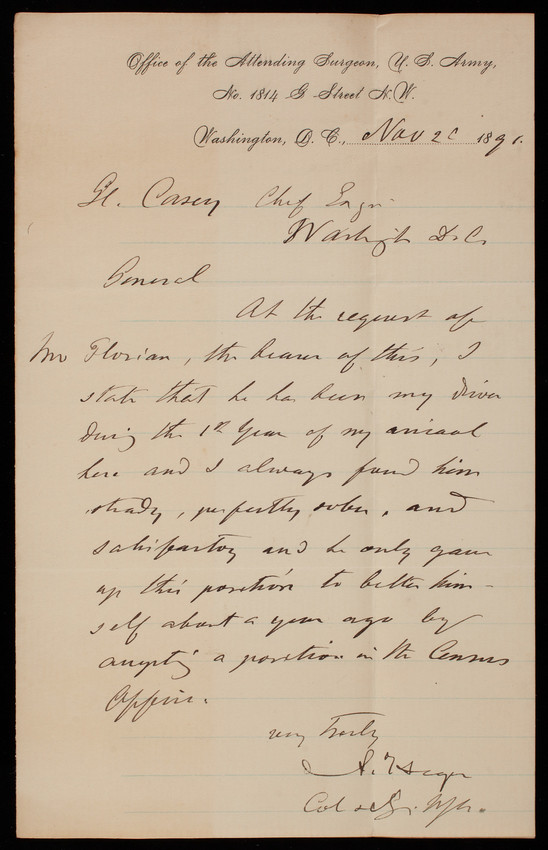 Office of the Attending Surgeon, U. S. Army,
No. 1814 G Street N.W.
Washington, D. C., Nov 2 1891.
Gl. Casey Chief Engr
Washingt D. C.
General
At the request of
Mr Florian, the bearer of this, I
state that he has been my driver
during the 1st year of my arrival
here and I always found him
steady, perfectly sober, and
satisfactory and he only gave
up this position to better him-
self about a year ago by
accepting a position in the Census
Office.
very truly
Col